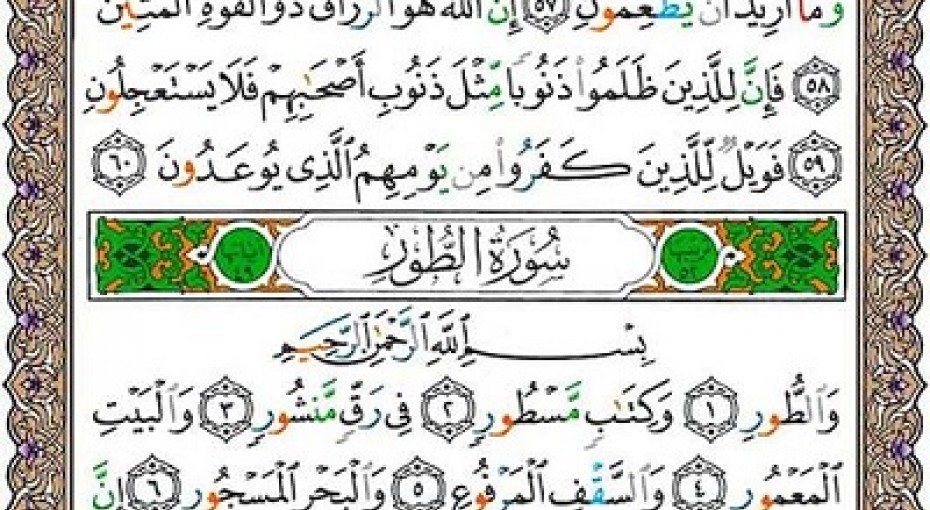 وَمَا أُرِيدُ أَن يُطْعِمُونِ ٥٧ إِنَّ ٱللَّهَ هُوَ ٱلرَّزَّاقُ ذُو ٱلْقُوَّةِ ٱلْمَتِينُ
٥٨ فَإِنَّ لِلَّذِينَ ظَلَمُوا۟ ذَنُوبًا مِّثْلَ ذَنُوبِ أَصْحَٰبِهِمْ فَلَا يَسْتَعْجِلُونِ
٥٩ فَوَيْلٌ لِّلَّذِينَ كَفَرُوا۟ مِن يَوْمِهِمُ ٱلَّذِى يُوعَدُونَ ٦٠
سُورَةُ الطُّورِ
بِسْمِ ٱللَّهِ ٱلرَّحْمَٰنِ ٱلرَّحِيمِ
وَٱلطُّورِ ١ وَكِتَٰبٍ مَّسْطُورٍ ٢ فِى رَقٍّ مَّنشُورٍ ٣ وَٱلْبَيْتِ
ٱلْمَعْمُورِ ٤ وَٱلسَّقْفِ ٱلْمَرْفُوعِ ٥ وَٱلْبَحْرِ ٱلْمَسْجُورِ ٦ إِنَّ